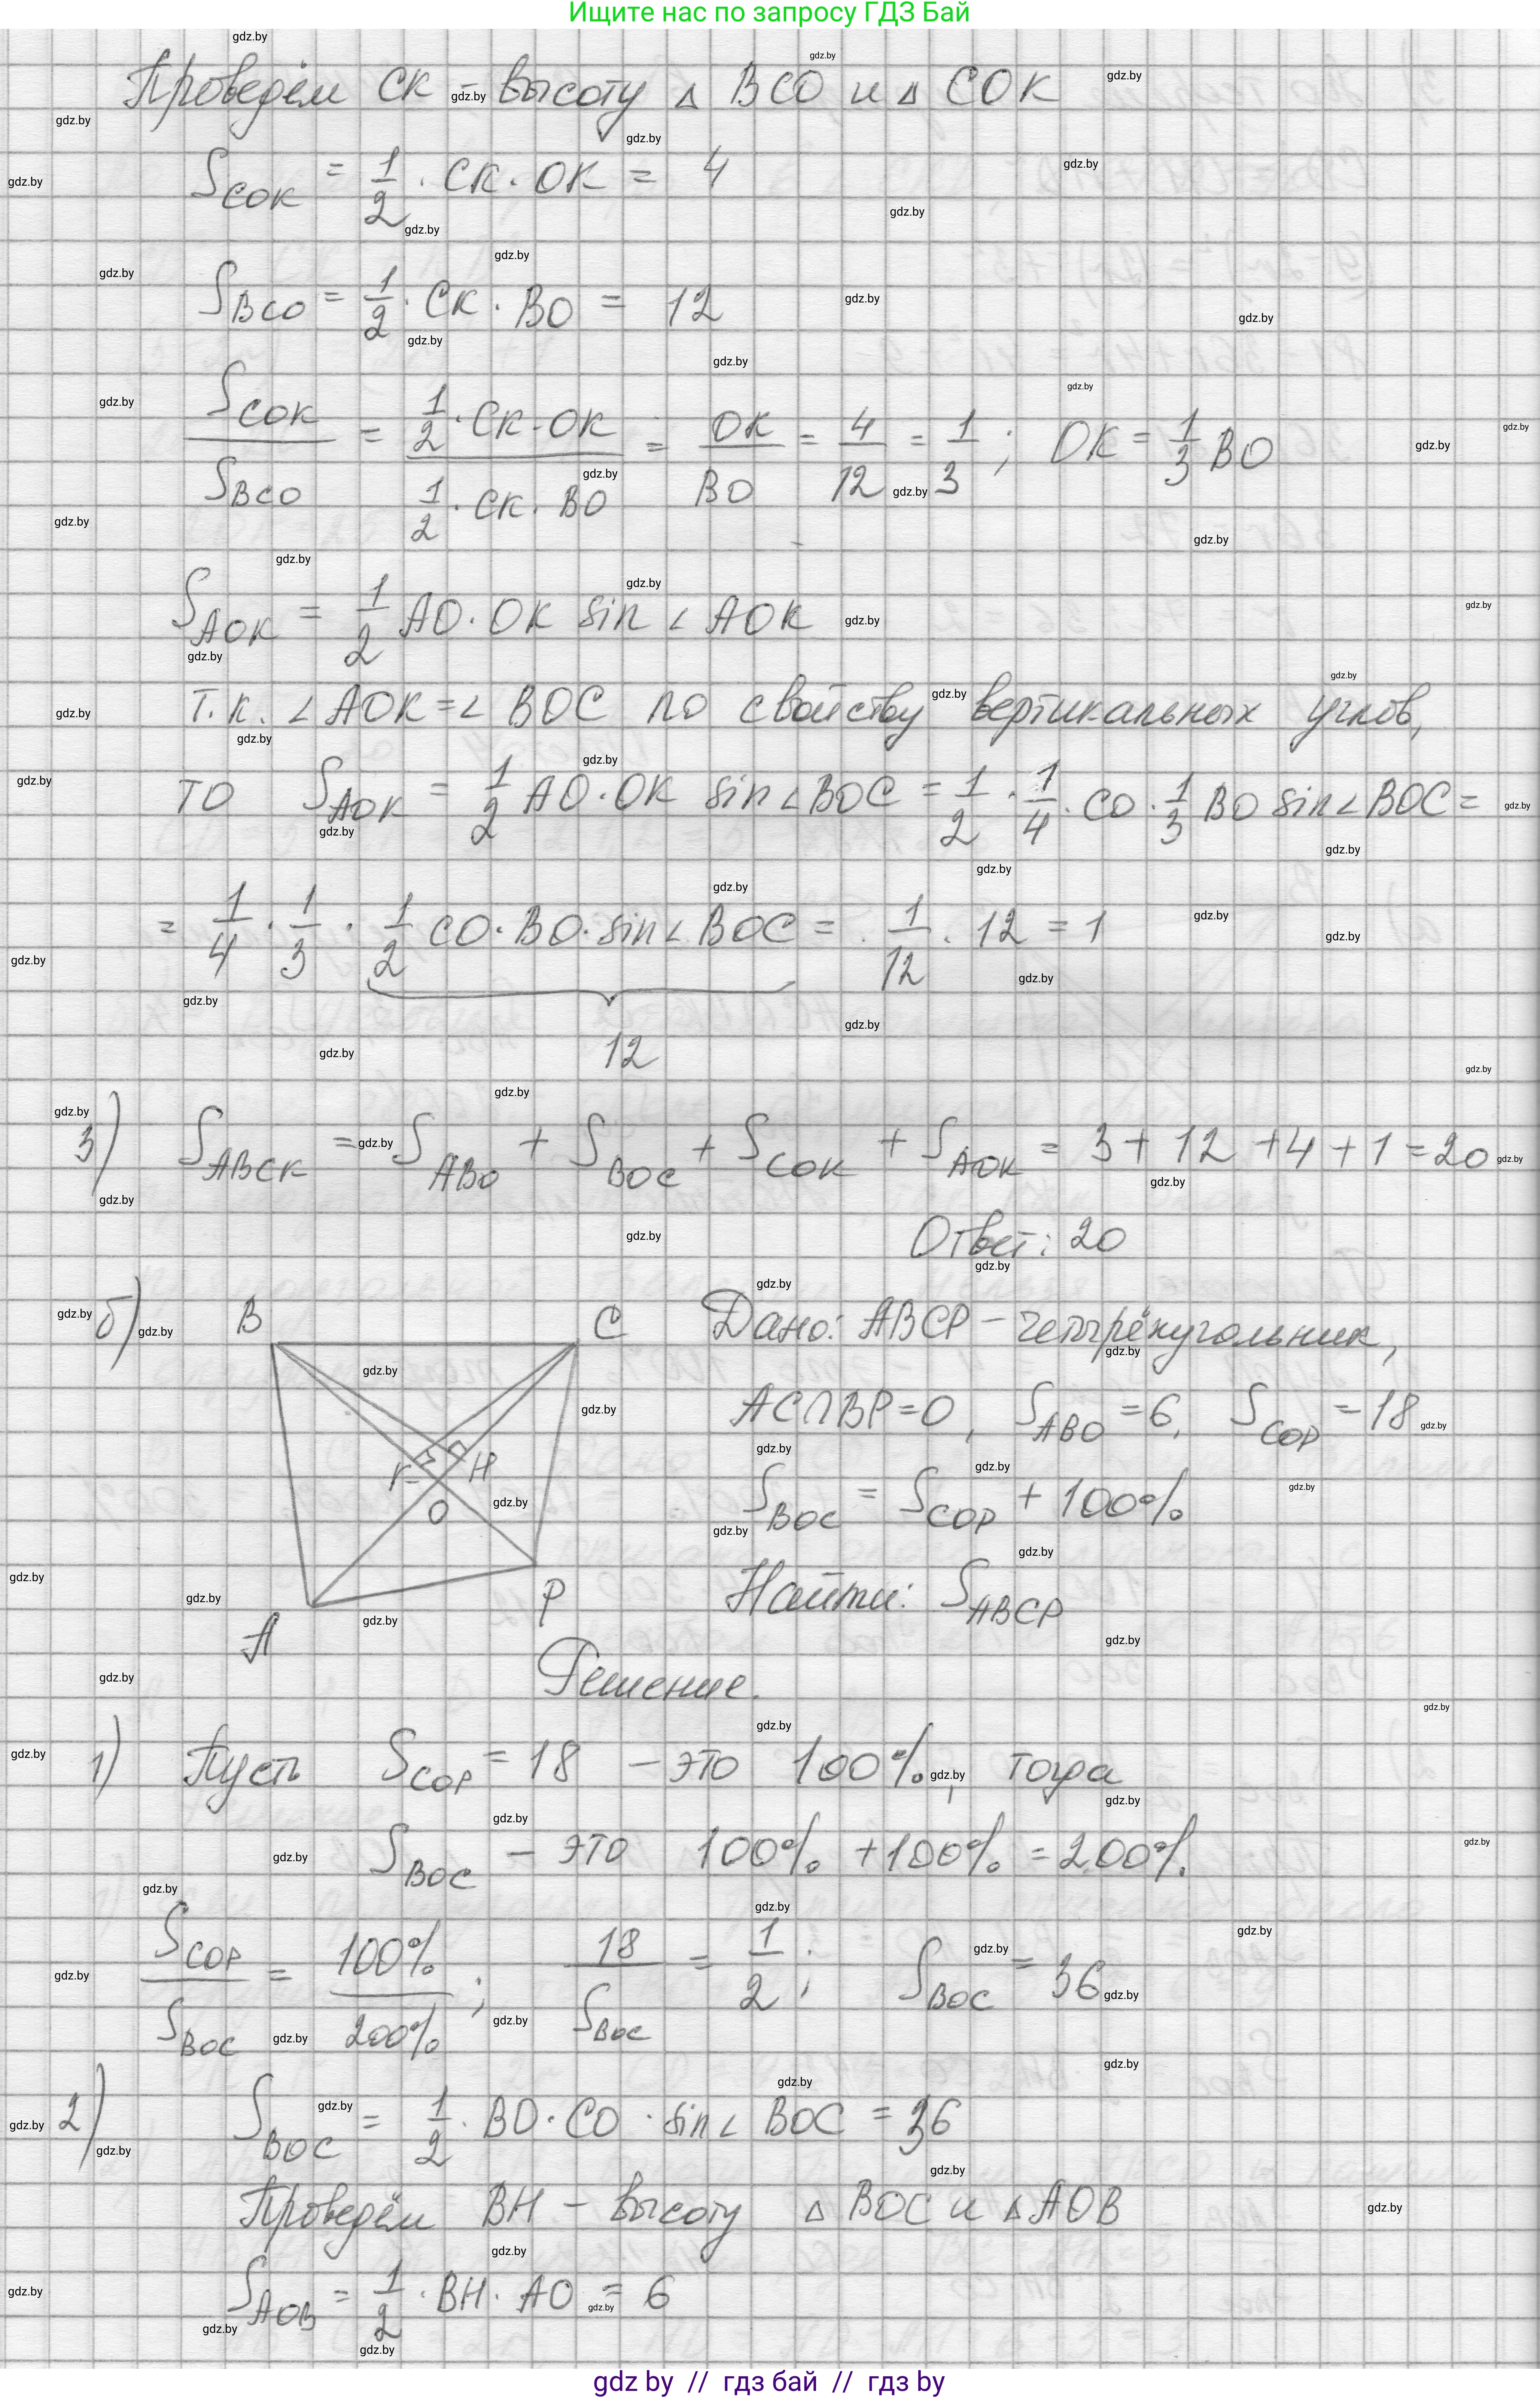 Ищите нас по запросу ГДЗ Бай
Проведём CK - высоту △ BCO и △ COK
S_COK = 1/2 · CK · OK = 4
S_BCO = 1/2 · CK · BO = 12
S_COK / S_BCO = (1/2 · CK · OK) / (1/2 · CK · BO) = OK/BO = 4/12 = 1/3 ; OK = 1/3 BO
S_AOK = 1/2 AO · OK sin ∠ AOK
т.к. ∠ AOK = ∠ BOC по свойству вертикальных углов,
то S_AOK = 1/2 AO · OK sin ∠ BOC = 1/2 · 1/4 · CO · 1/3 BO sin ∠ BOC =
= 1/4 · 1/3 · 1/2 CO · BO · sin ∠ BOC = 1/12 · 12 = 1
12
3) S_ABCK = S_ABO + S_BOC + S_COK + S_AOK = 3 + 12 + 4 + 1 = 20
Ответ: 20
б) B C Дано: ABCP – четырёхугольник,
AC∩BP=O, S_ABO = 6, S_COP = 18
K H O
S_BOC = S_COP + 100%
A P
Найти: S_ABCP
Решение.
1) Пусть S_COP = 18 – это 100%, тогда
S_BOC – это 100% + 100% = 200%
S_COP / S_BOC = 100% / 200% ; 18 / S_BOC = 1/2 ; S_BOC = 36
2) S_BOC = 1/2 · BO · CO · sin ∠ BOC = 36
Проведём BH – высоту △ BOC и △ AOB
S_AOB = 1/2 · BH · AO = 6
gdz by // гдз бай // гдз by